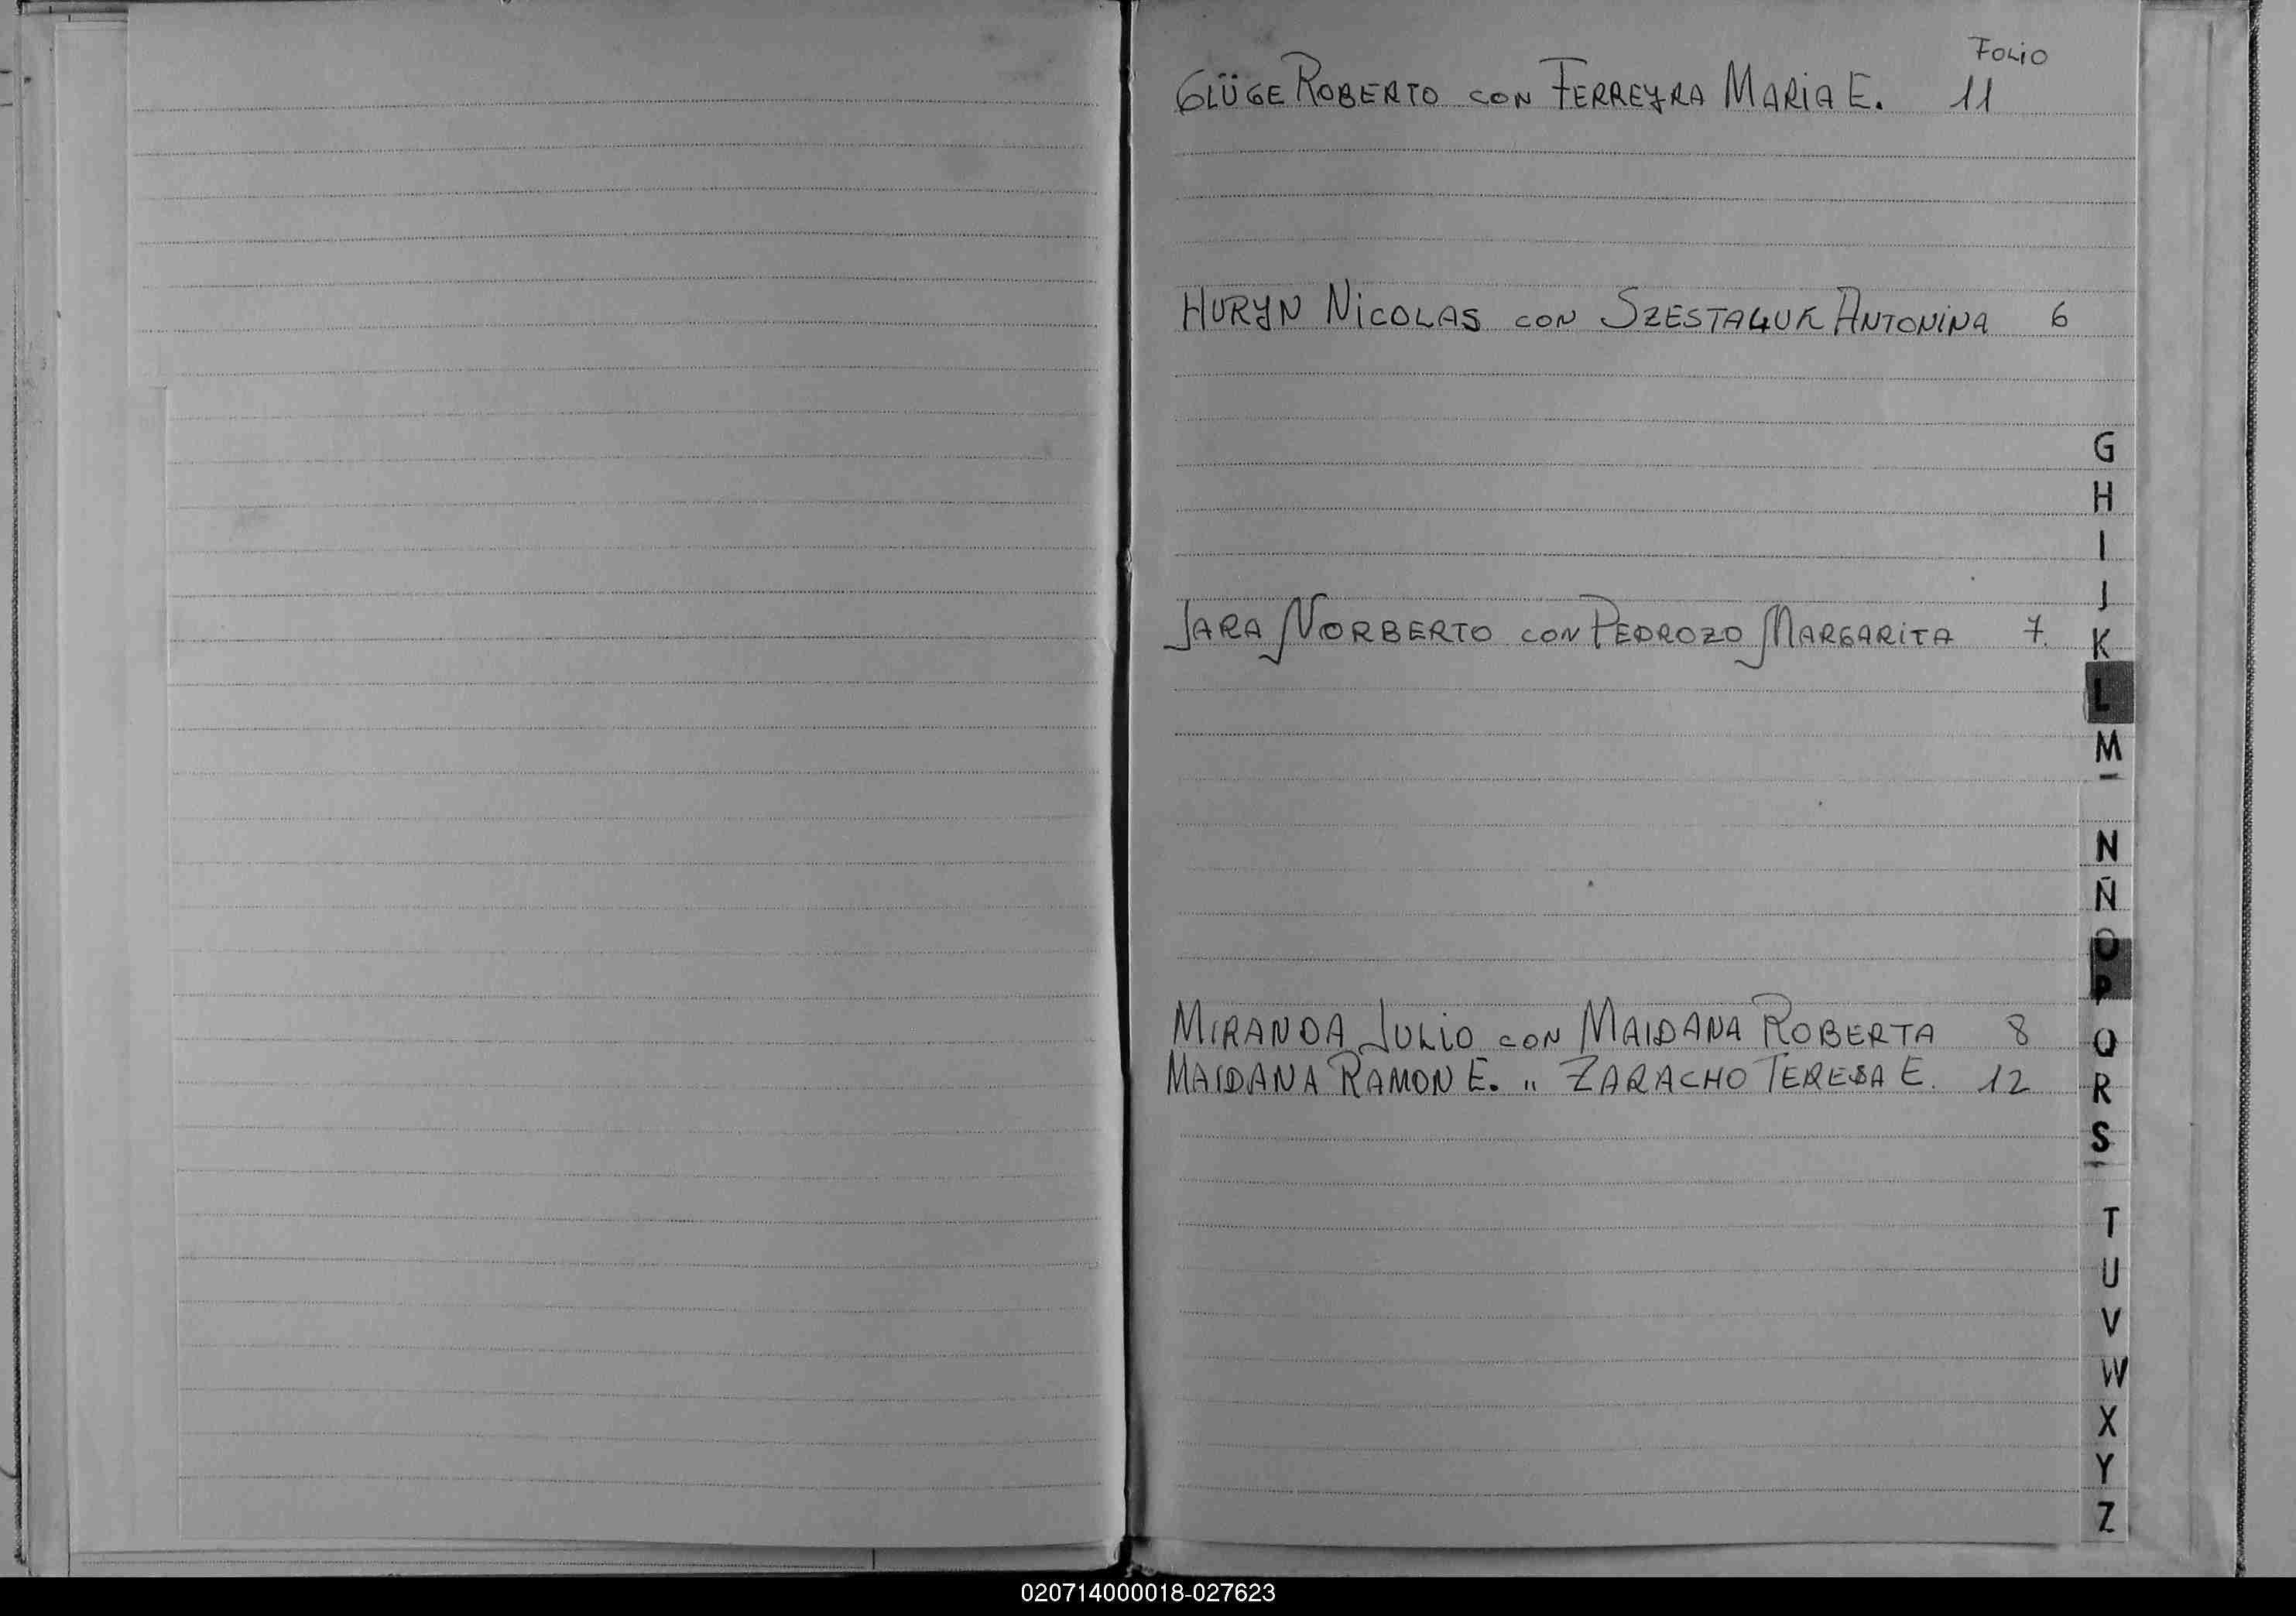 Folio
GLÜGE ROBERTO CON FERREYRA MARIA E. 11
HURYN NICOLAS CON SZESTAGUK ANTONINA 6
G
H
I
J
JARA NORBERTO CON PEDROZO MARGARITA 7
K
L
M
N
Ñ
O
P
MIRANDA JULIO CON MAIDANA ROBERTA 8
Q
MAIDANA RAMON E. " ZARACHO TERESA E. 12
R
S
T
U
V
W
X
Y
Z
020714000018-027623